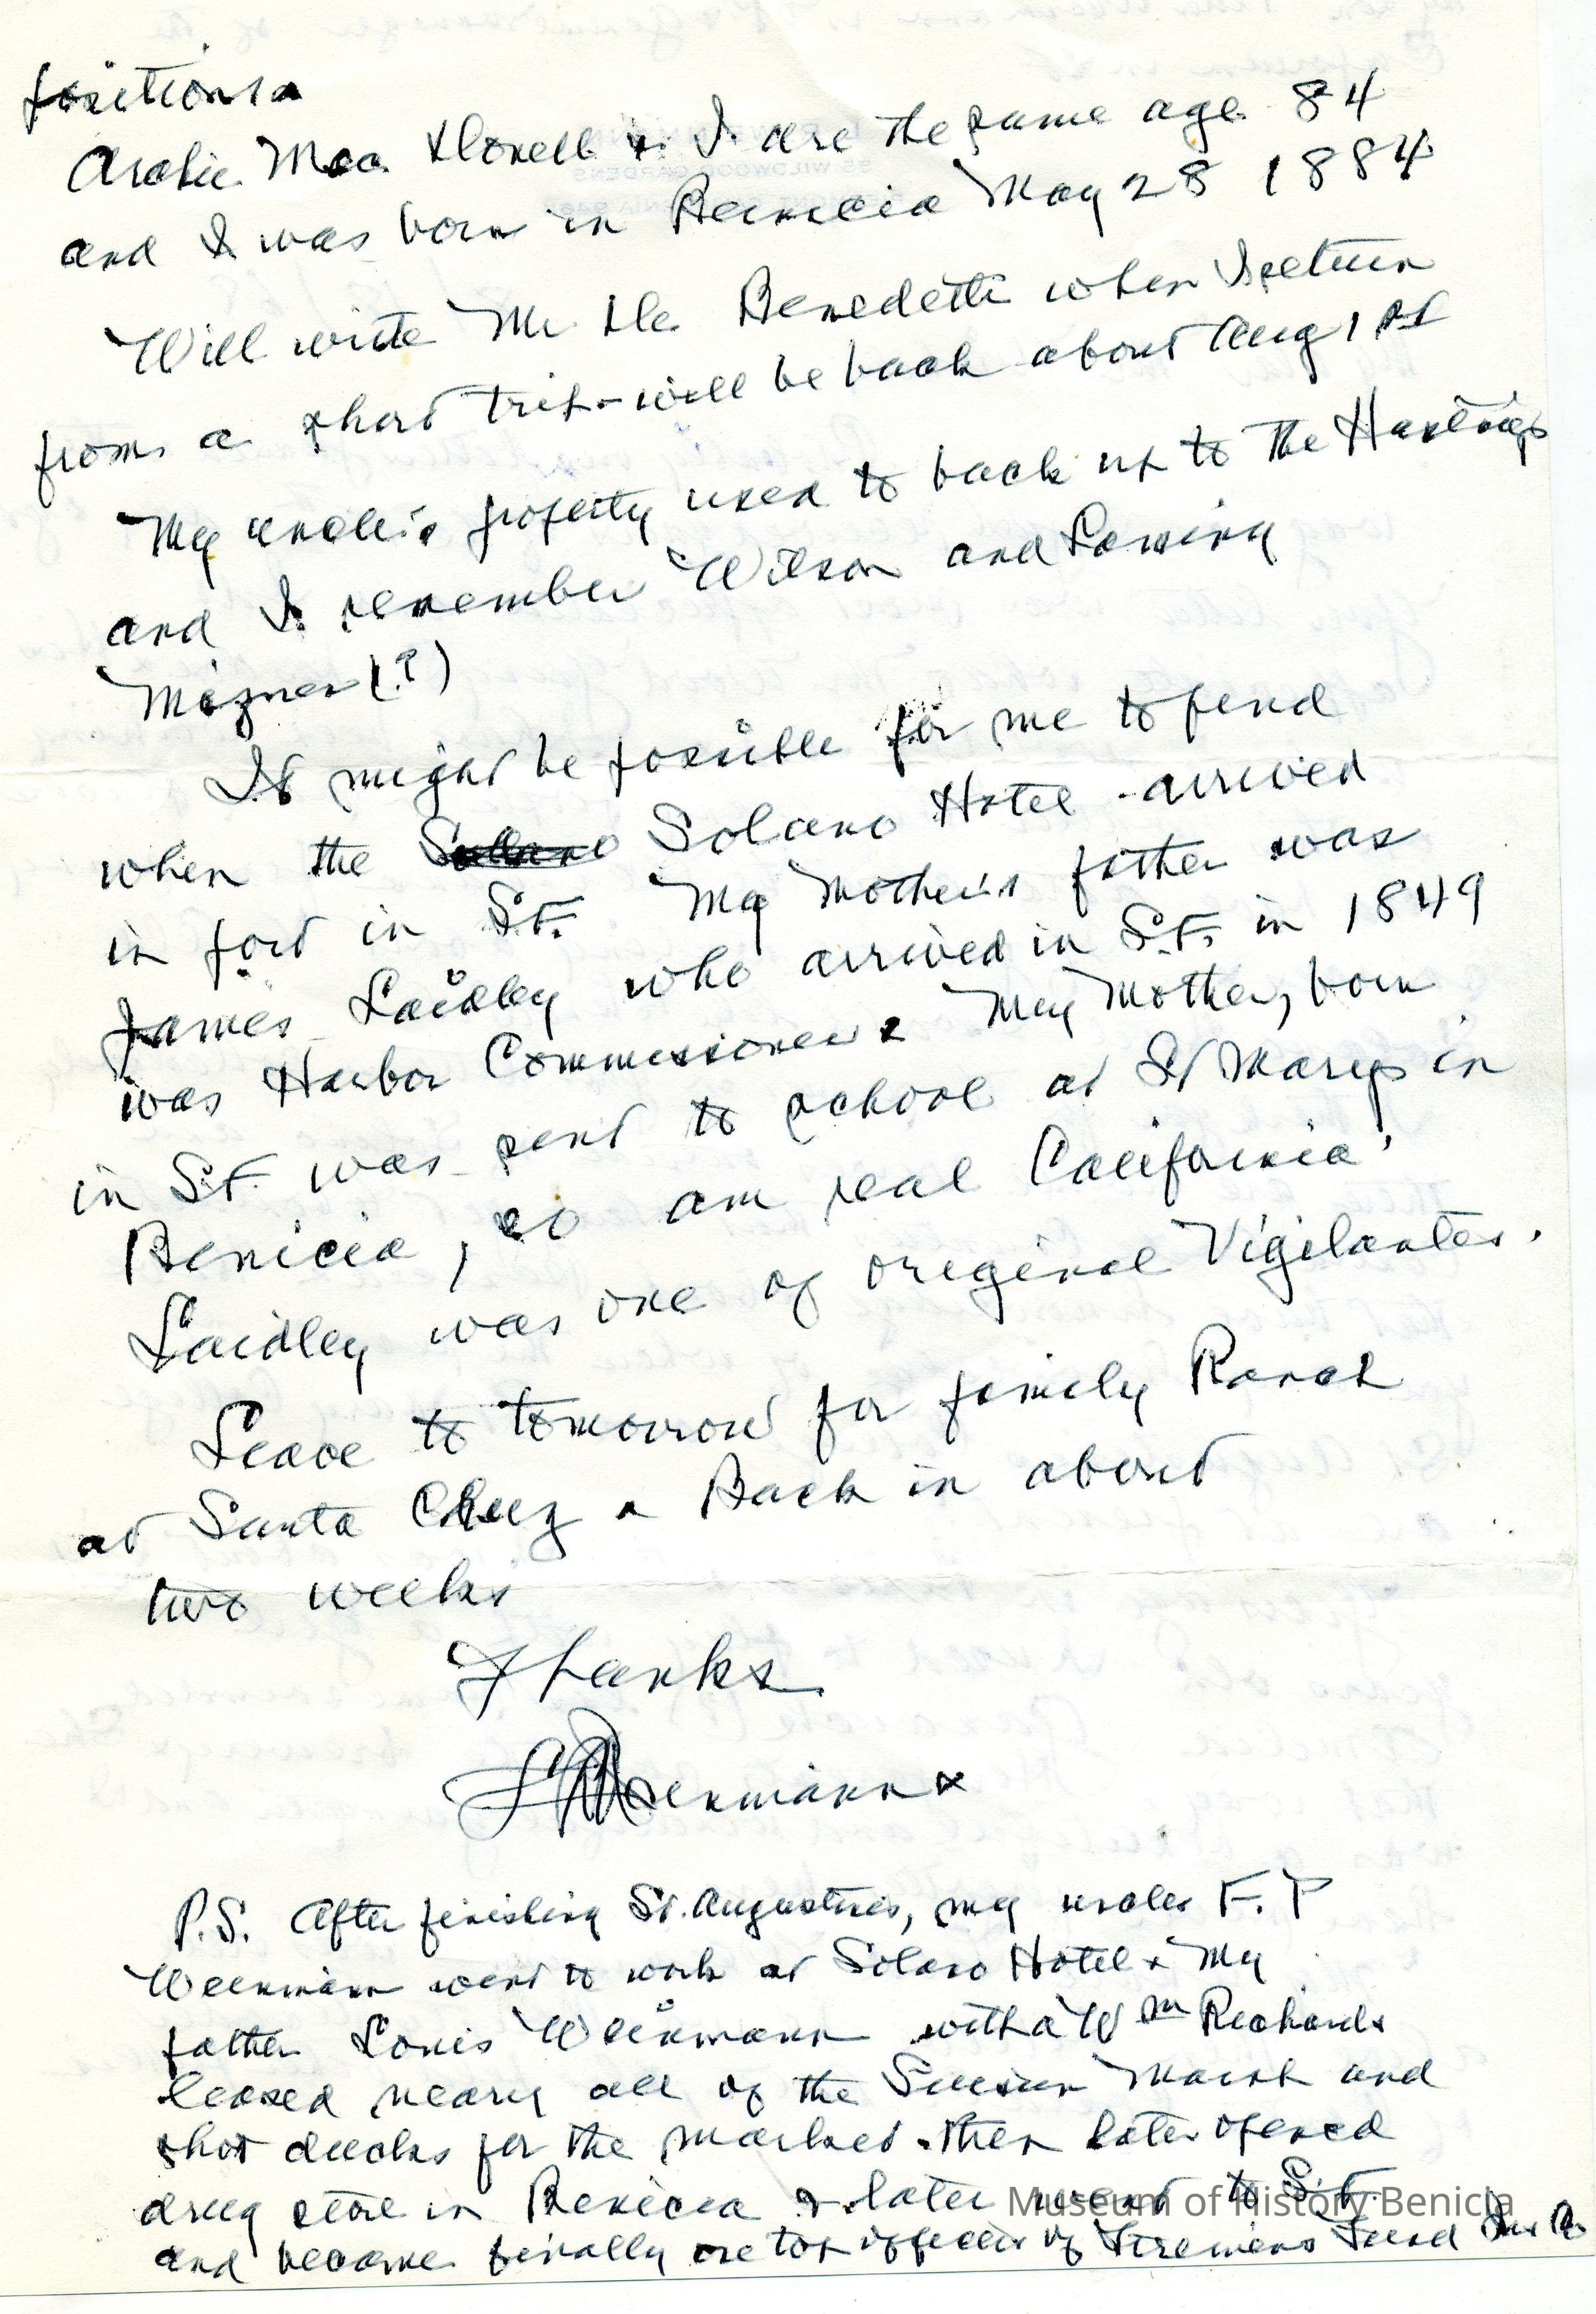 positions.
Archie MacDonell & I are the same age 84
and I was born in Benicia May 28 1884
Will write Mr De Benedetti when I return
from a short trip - will be back about Aug 1st
My uncle's property used to back up to the Hastings
and I remember Wilson and Lansing
Mizner (?)
It might be possible for me to find
when the Solano Solano Hotel - arrived
in port in S.F. My Mother's father was
James Laidley who arrived in S.F. in 1849
was Harbor Commissioner. My Mother, born
in S.F. was sent to school at St Marys in
Benicia, so am real California'
Laidley was one of original Vigilantes.
Leave to tomorrow for family Ranch
at Santa Cruz. Back in about
two weeks
Thanks
Weinmann
P.S. After finishing St. Augustines, my uncle F. P
Weinmann went to work at Solano Hotel. My
father Louis Weinmann with a Wm Richards
leased nearly all of the Suisun Marsh and
shot ducks for the market. then later opened
drug store in Benicia & later went to S.F.
and became finally one top officer of Firemens Fund Ins Co
Museum of History Benicia